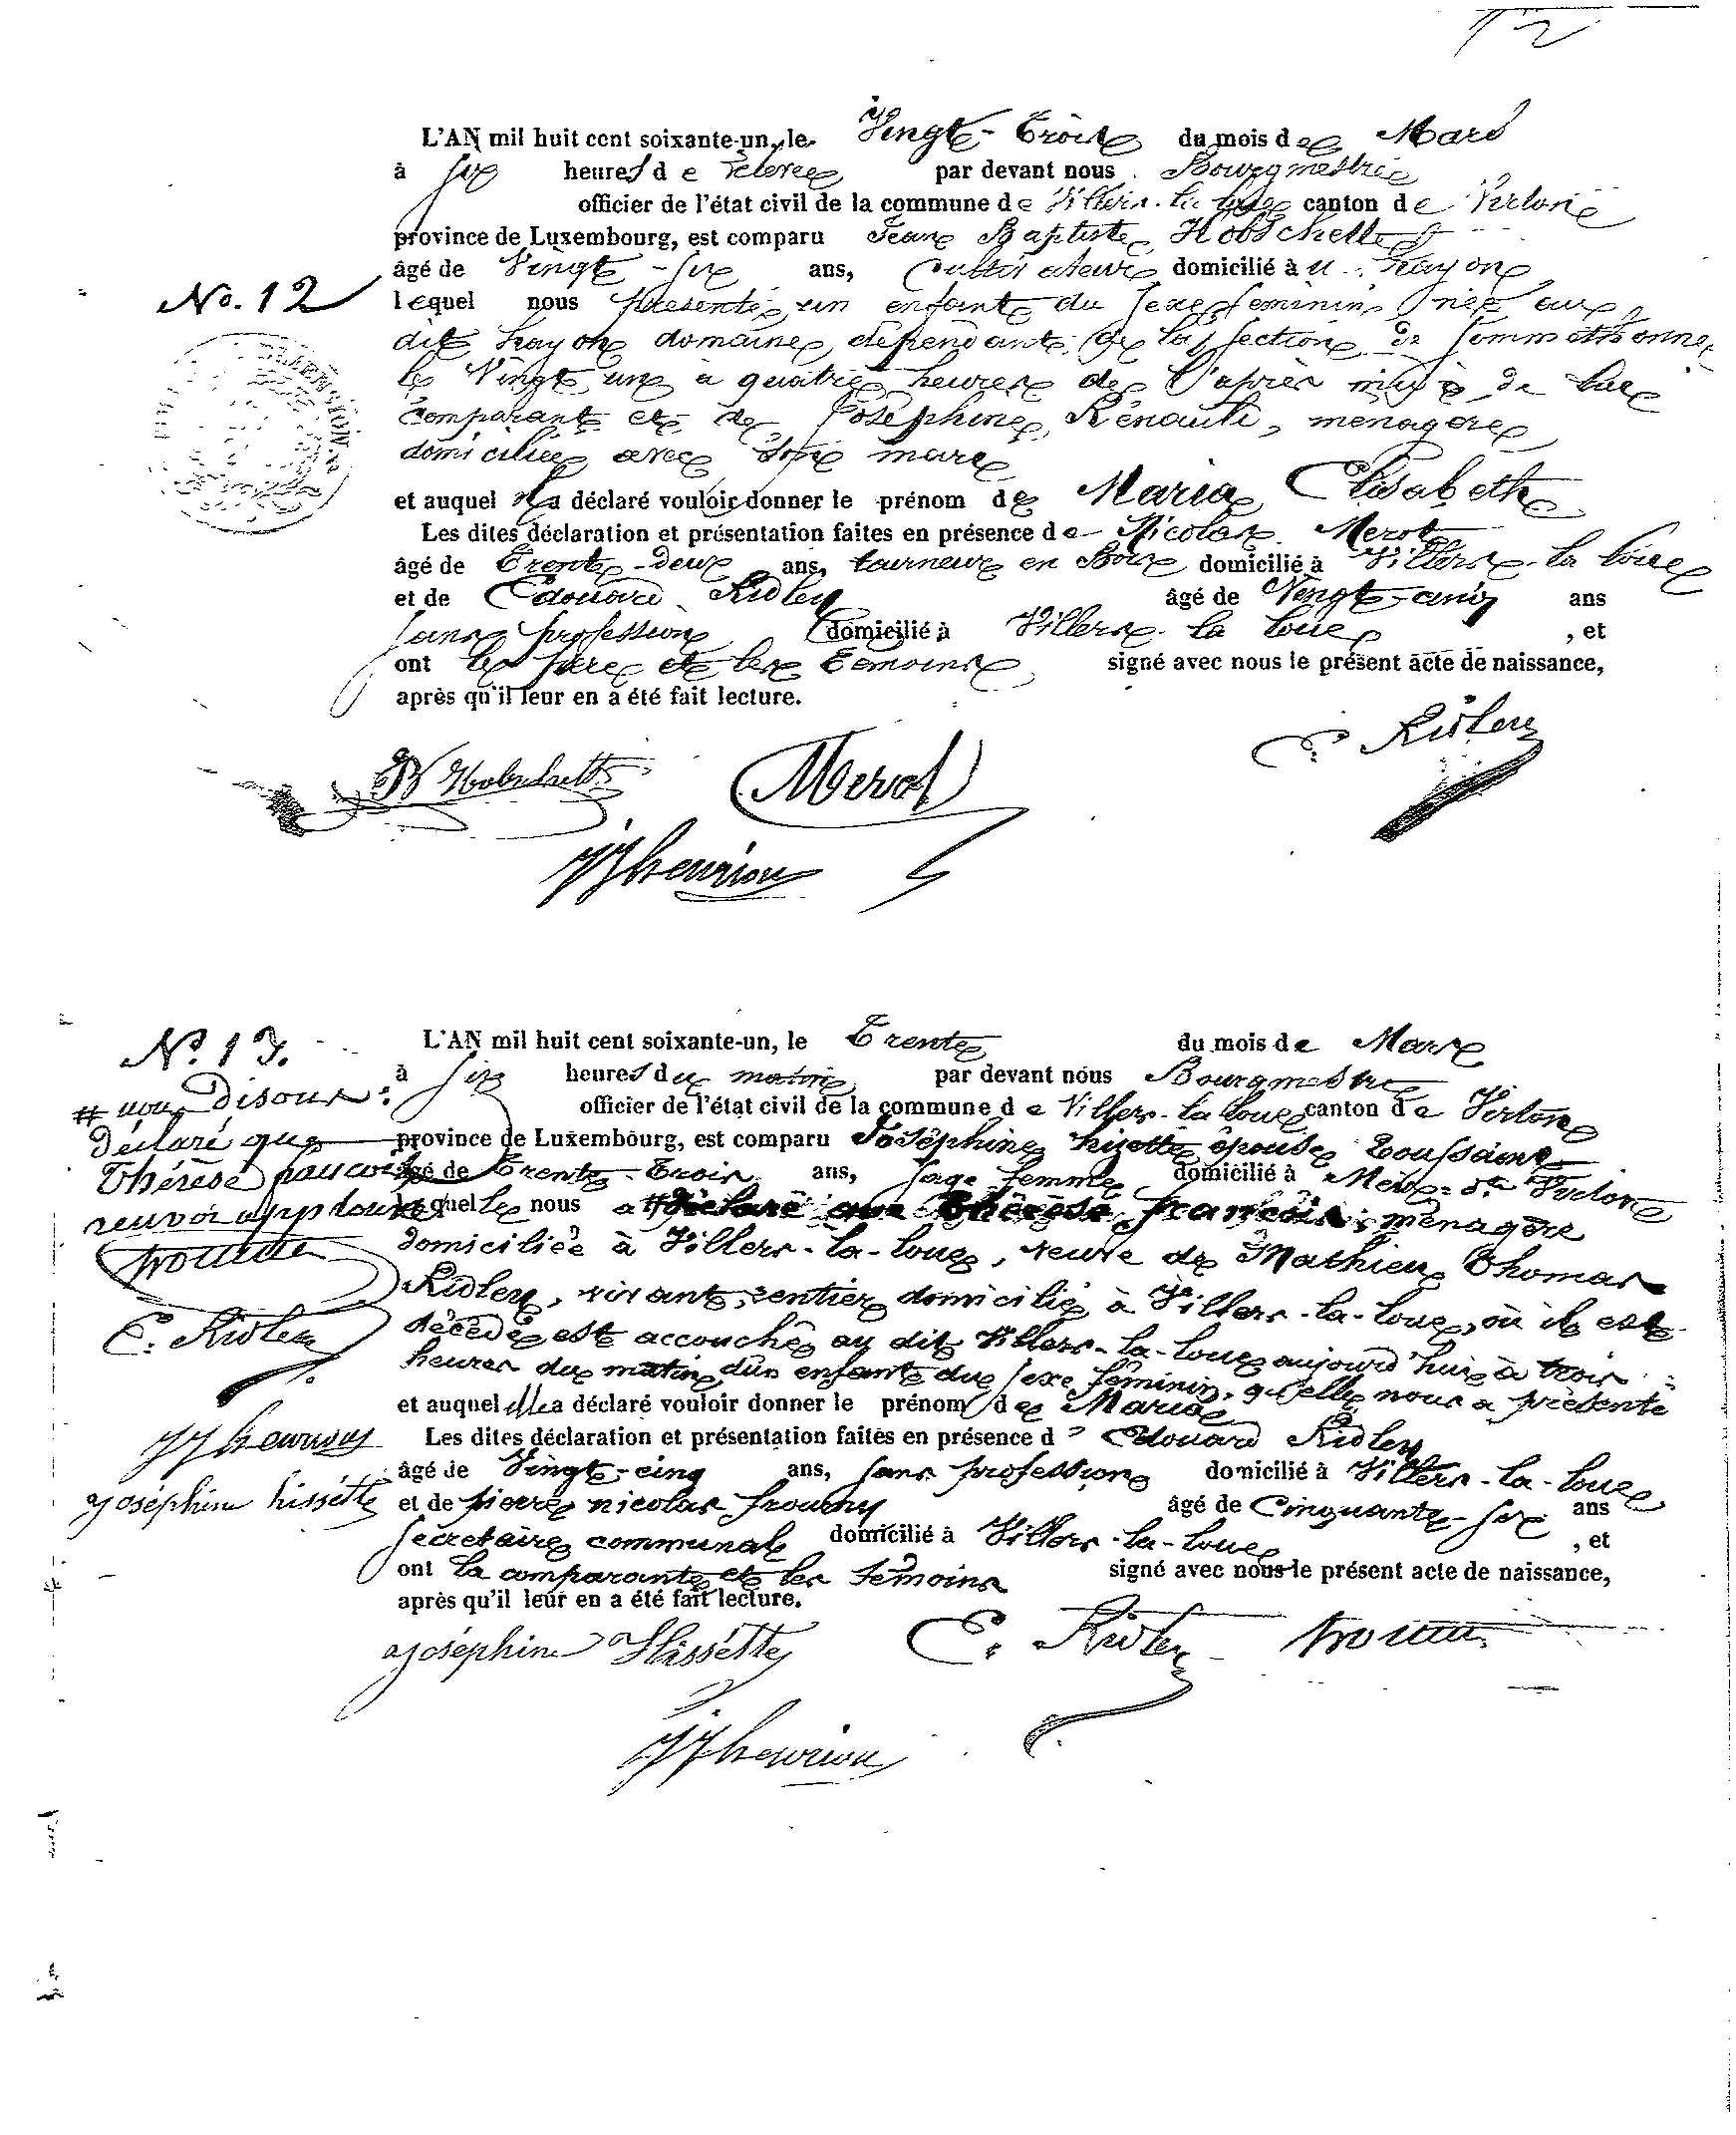 12
L'AN mil huit cent soixante-un, le Vingt-Trois du mois de Mars
à six heures de relevée par devant nous Bourgmestre
officier de l'état civil de la commune de Villers-la-loue canton de Virton
province de Luxembourg, est comparu Jean Baptiste Hobschette
No. 12
âgé de Vingt-six ans, Cultivateur domicilié à hayon
lequel nous présenté un enfant du sexe feminin née au
dit hayon domaine dépendant de la section de Sommethonne
le Vingt un à quatre heures de l'après midi de lui
comparant et de Joséphine Renauld, menagere
domiciliée avec son mari
et auquel il a déclaré vouloir donner le prénom de Maria Elisabeth
Les dites déclaration et présentation faites en présence de Nicolas Merot
âgé de Trente-deux ans, tourneur en Bois domicilié à Villers-la loue
et de Edouard Ridley âgé de Vingt-cinq ans
sans profession domicilié à Villers-la loue, et
ont le père et les témoins signé avec nous le présent acte de naissance,
après qu'il leur en a été fait lecture.
E. Ridley
JB Hobschette Merot
JJ henrion
No. 13.
L'AN mil huit cent soixante-un, le Trente du mois de Mars
à six heures du matin par devant nous Bourgmestre
# nous Disons:
officier de l'état civil de la commune de Villers-la-loue canton de Virton
Déclaré que
province de Luxembourg, est comparu Joséphine hizette épouse Toussaint
Thérèse
âgé de Trente-Trois ans, sage femme domicilié à Meix-dt Virton
renvoi approuvé
lequelle nous a # déclaré que Thérèse françois, ménagère
domiciliée à Villers-la-loue, veuve de Mathieu Thomas
Ridley, vivant, rentier domicilié à Villers-la-loue, où il est
E. Ridley
décédé est accouché au dit Villers-la-loue aujourd'hui à trois
heures du matin d'un enfant du sexe féminin, qu'elle nous a présenté
et auquel elle a déclaré vouloir donner le prénom de Maria
JJ henrion
Les dites déclaration et présentation faites en présence d Edouard Ridley
âgé de Vingt-cinq ans, sans profession domicilié à Villers-la-loue
joséphine hissette
et de pierre nicolas frouny âgé de Cinquante-six ans
secretaire communal domicilié à Villers-la-loue, et
ont la comparante et les témoins signé avec nous le présent acte de naissance,
après qu'il leur en a été fait lecture.
joséphine Hissette E. Ridley
JJ henrion